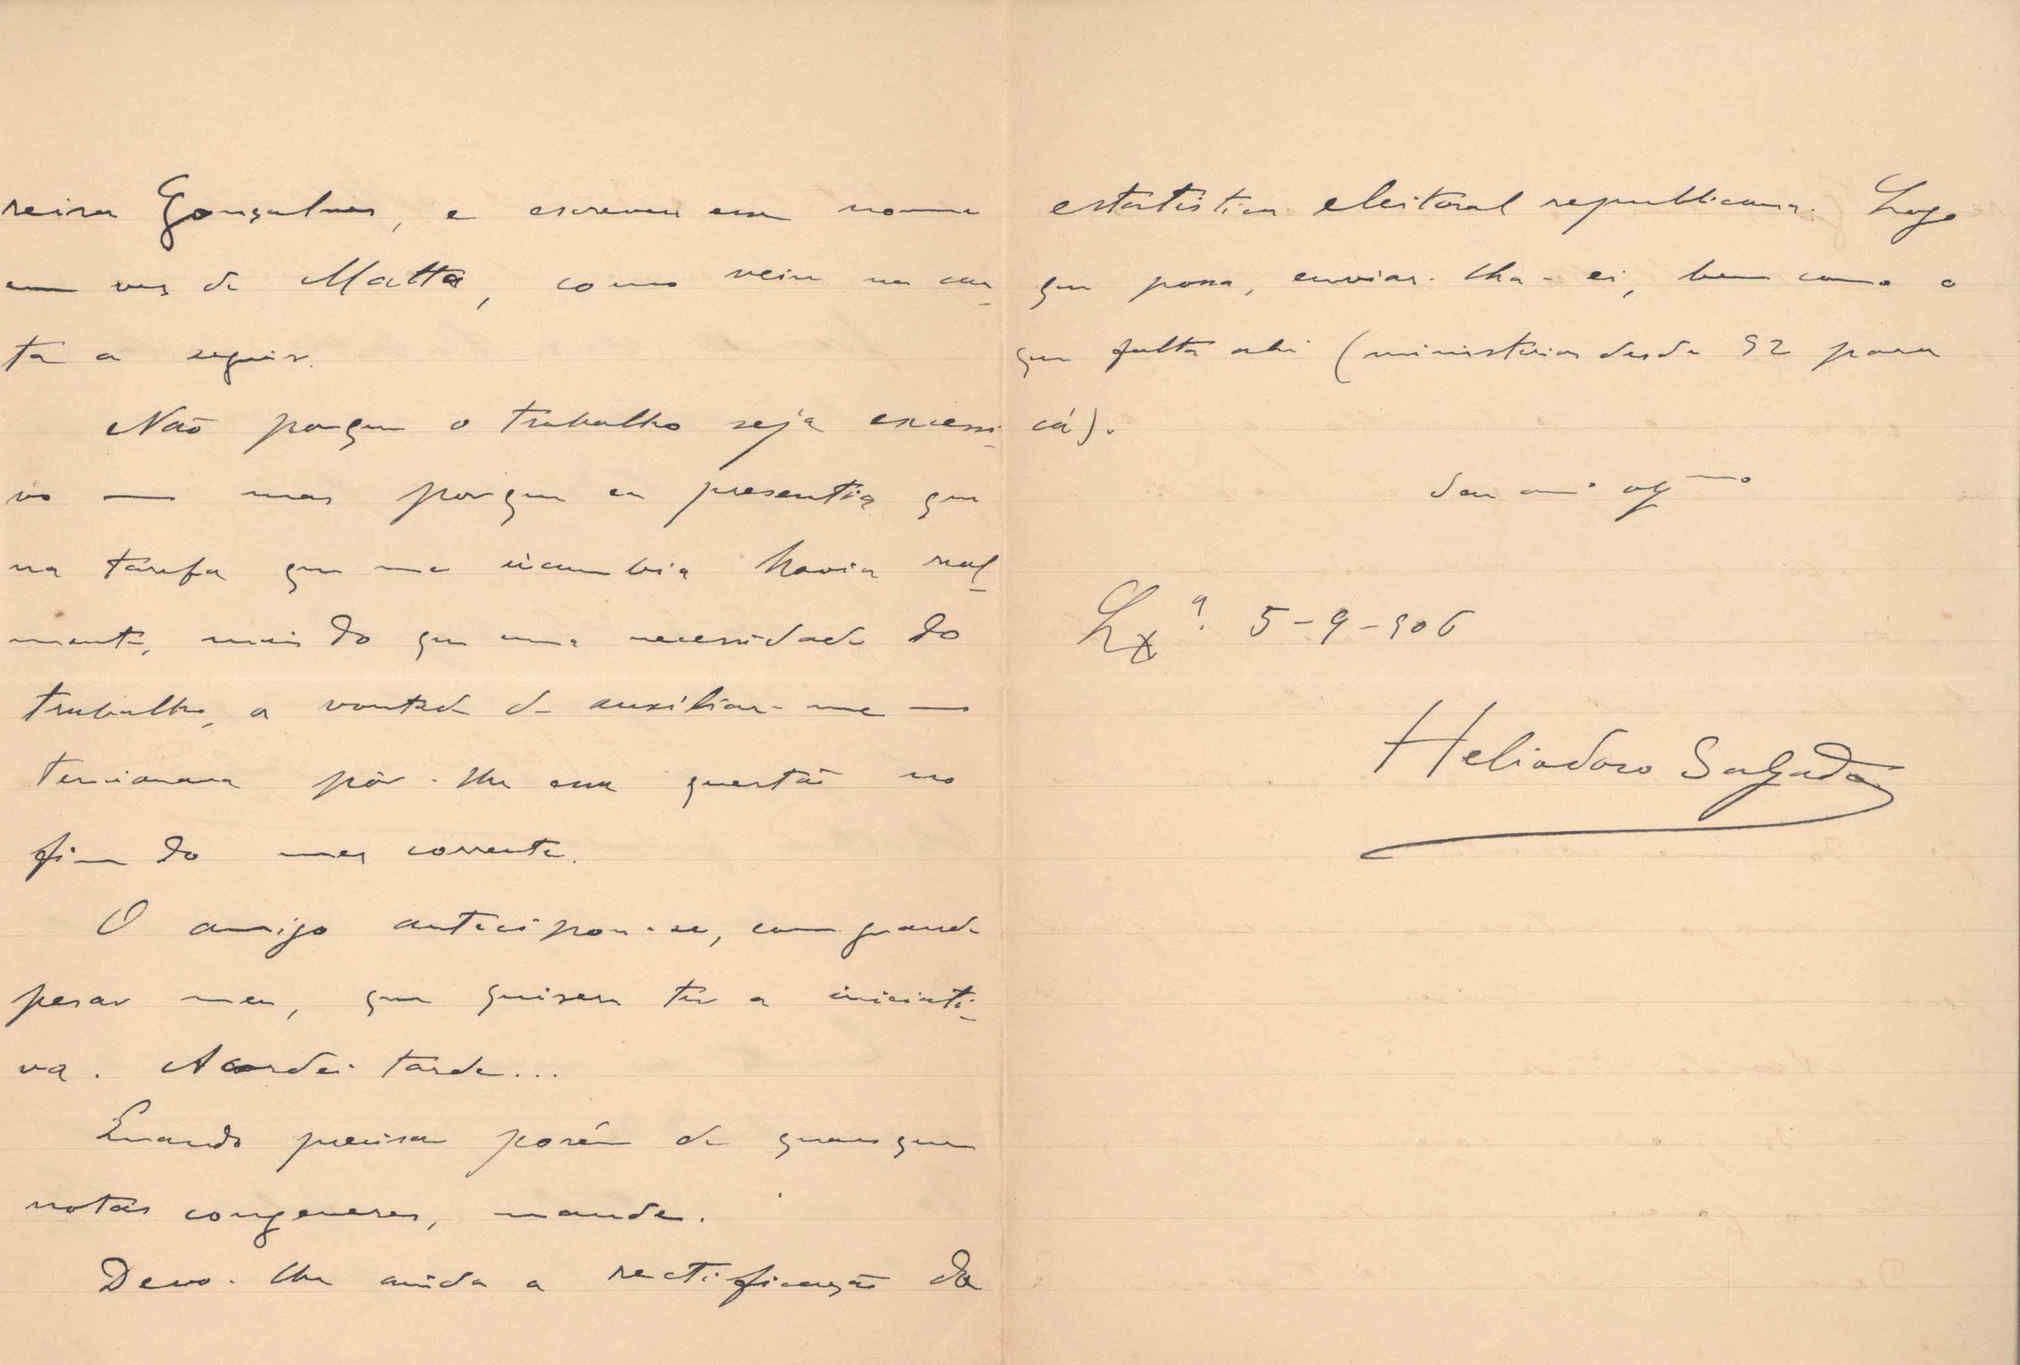 reira Gonçalves, e escreveu esse nome
em vez de Matta, como veiu na car-
ta a seguir.
Não porque o trabalho seja excessi-
vo — mas porque eu presentia que
na tarefa que me incumbia havia real-
mente, mais do que uma necessidade do
trabalho, a vontade de auxiliar-me —
tencionava pôr-lhe essa questão no
fim do mez corrente.
O amigo antecipou-se, com grande
pesar meu, que quizera ter a iniciati-
va. Acordei tarde...
Quando precisar porém de quaesquer
notas congeneres, mande.
Devo-lhe ainda a rectificação da
estatistica eleitoral republicana. Logo
que possa, enviar-lha-ei, bem como o
que falta ahi (ministerios desde 92 para
cá).
Seu amº obgmo
Lxª. 5-9-906
Heliodoro Salgado